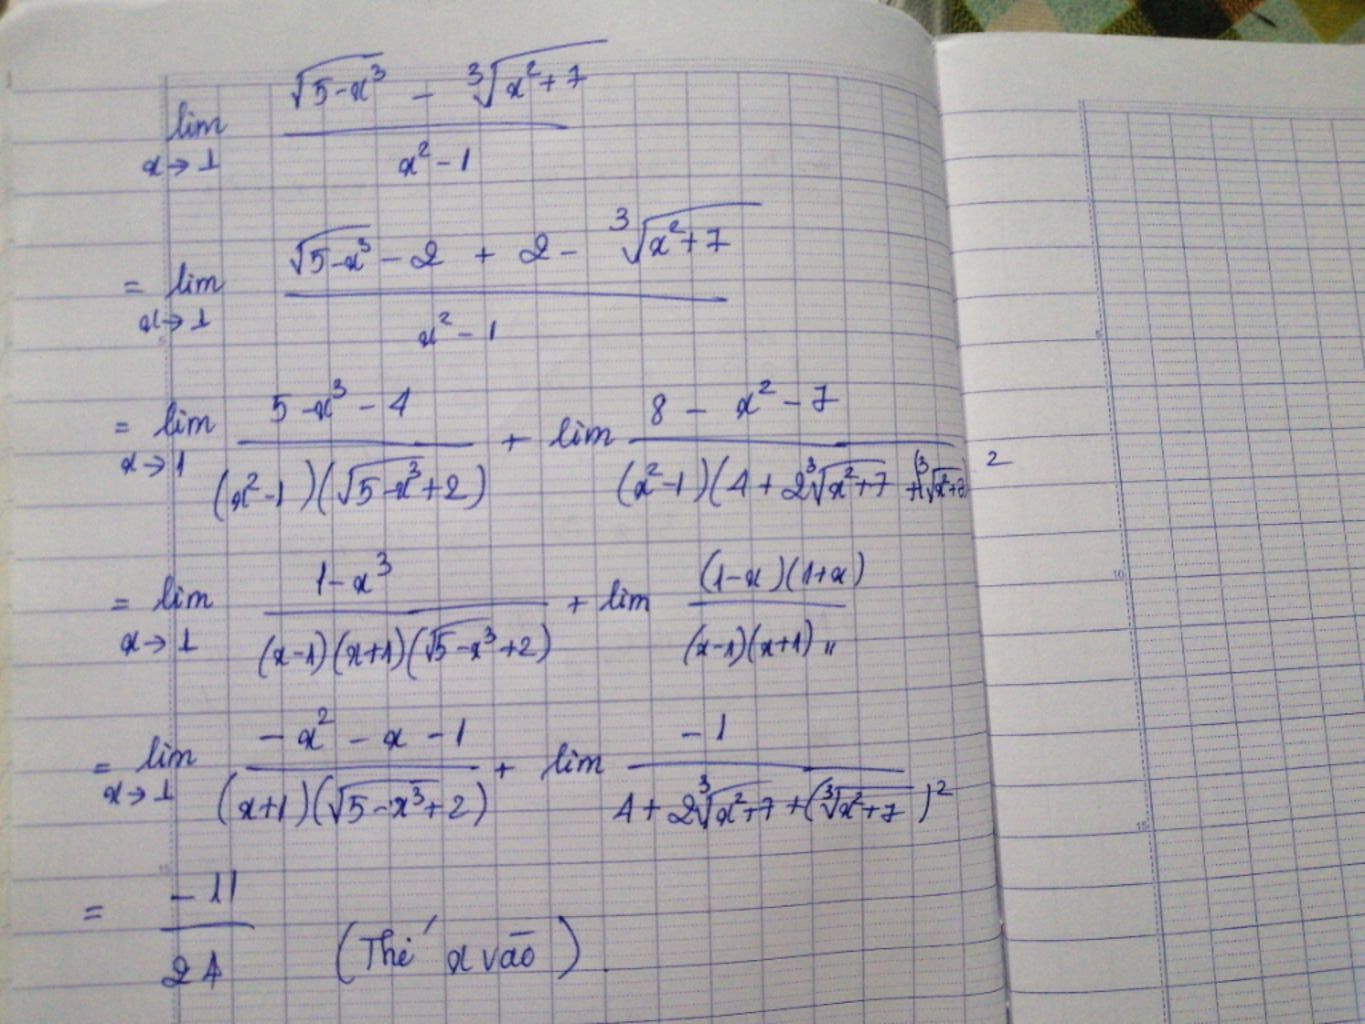 lim x→1 (√(5-x³) - ∛(x²+7)) / (x²-1)
= lim x→1 (√(5-x³) - 2 + 2 - ∛(x²+7)) / (x²-1)
= lim x→1 (5-x³-4) / ((x²-1)(√(5-x³)+2)) + lim (8 - x² - 7) / ((x²-1)(4 + 2∛(x²+7) + (∛(x²+7))²
= lim x→1 (1-x³) / ((x-1)(x+1)(√(5-x³)+2)) + lim (1-x)(1+x) / (x-1)(x+1) "
= lim x→1 (-x² - x - 1) / ((x+1)(√(5-x³)+2)) + lim -1 / (4 + 2∛(x²+7) + (∛(x²+7))²)
= -11 / 24 (Thế x vào)